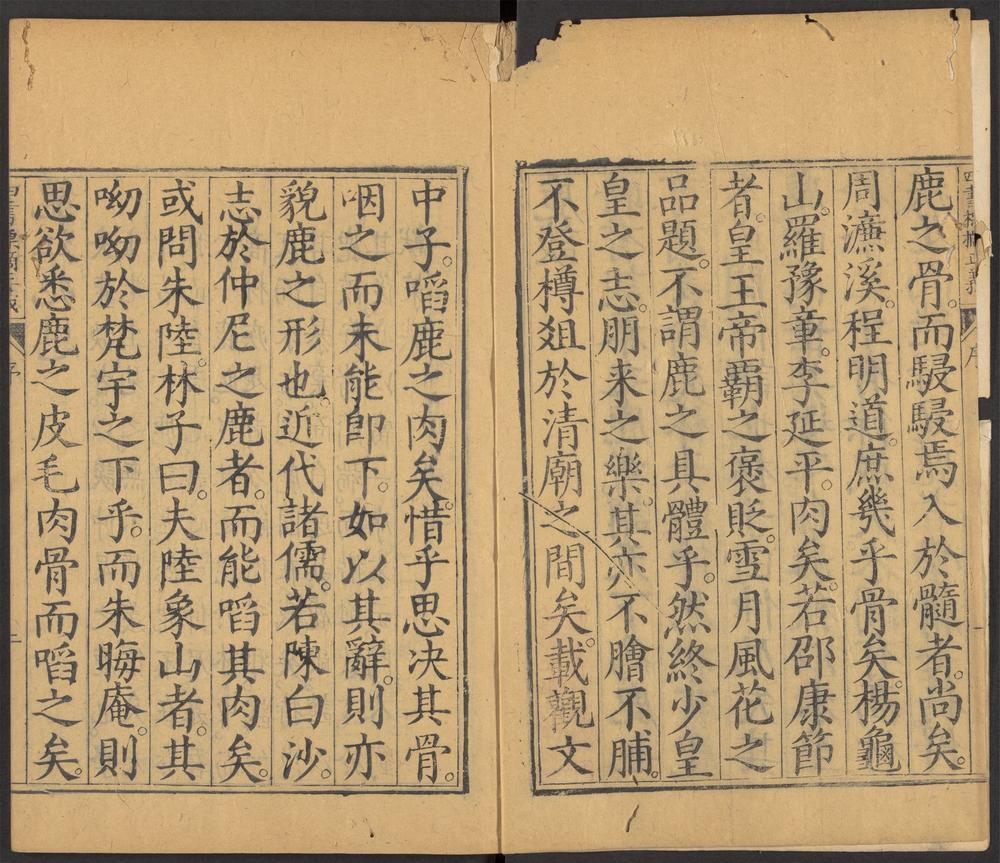 鹿之骨。而駸駸焉入於髓者。尚矣。
周濂溪。程明道。庶幾乎骨矣。楊龜
山。羅豫章。李延平。肉矣。若邵康節
者。皇王帝霸之褒貶。雪月風花之
品題。不謂鹿之具體乎。然終少皇
皇之志。朋来之樂。其亦不膾不脯。
不登樽俎於清廟之間矣。載觀文
中子。啗鹿之肉矣。惜乎思决其骨。
咽之而未能即下。如以其辭。則亦
貌鹿之形也。近代諸儒。若陳白沙。
志於仲尼之鹿者。而能啗其肉矣。
或問朱陸。林子曰。夫陸象山者。其
呦呦於梵宇之下乎。而朱晦庵。則
思欲悉鹿之皮毛肉骨而啗之矣。
四書標摘正義
序